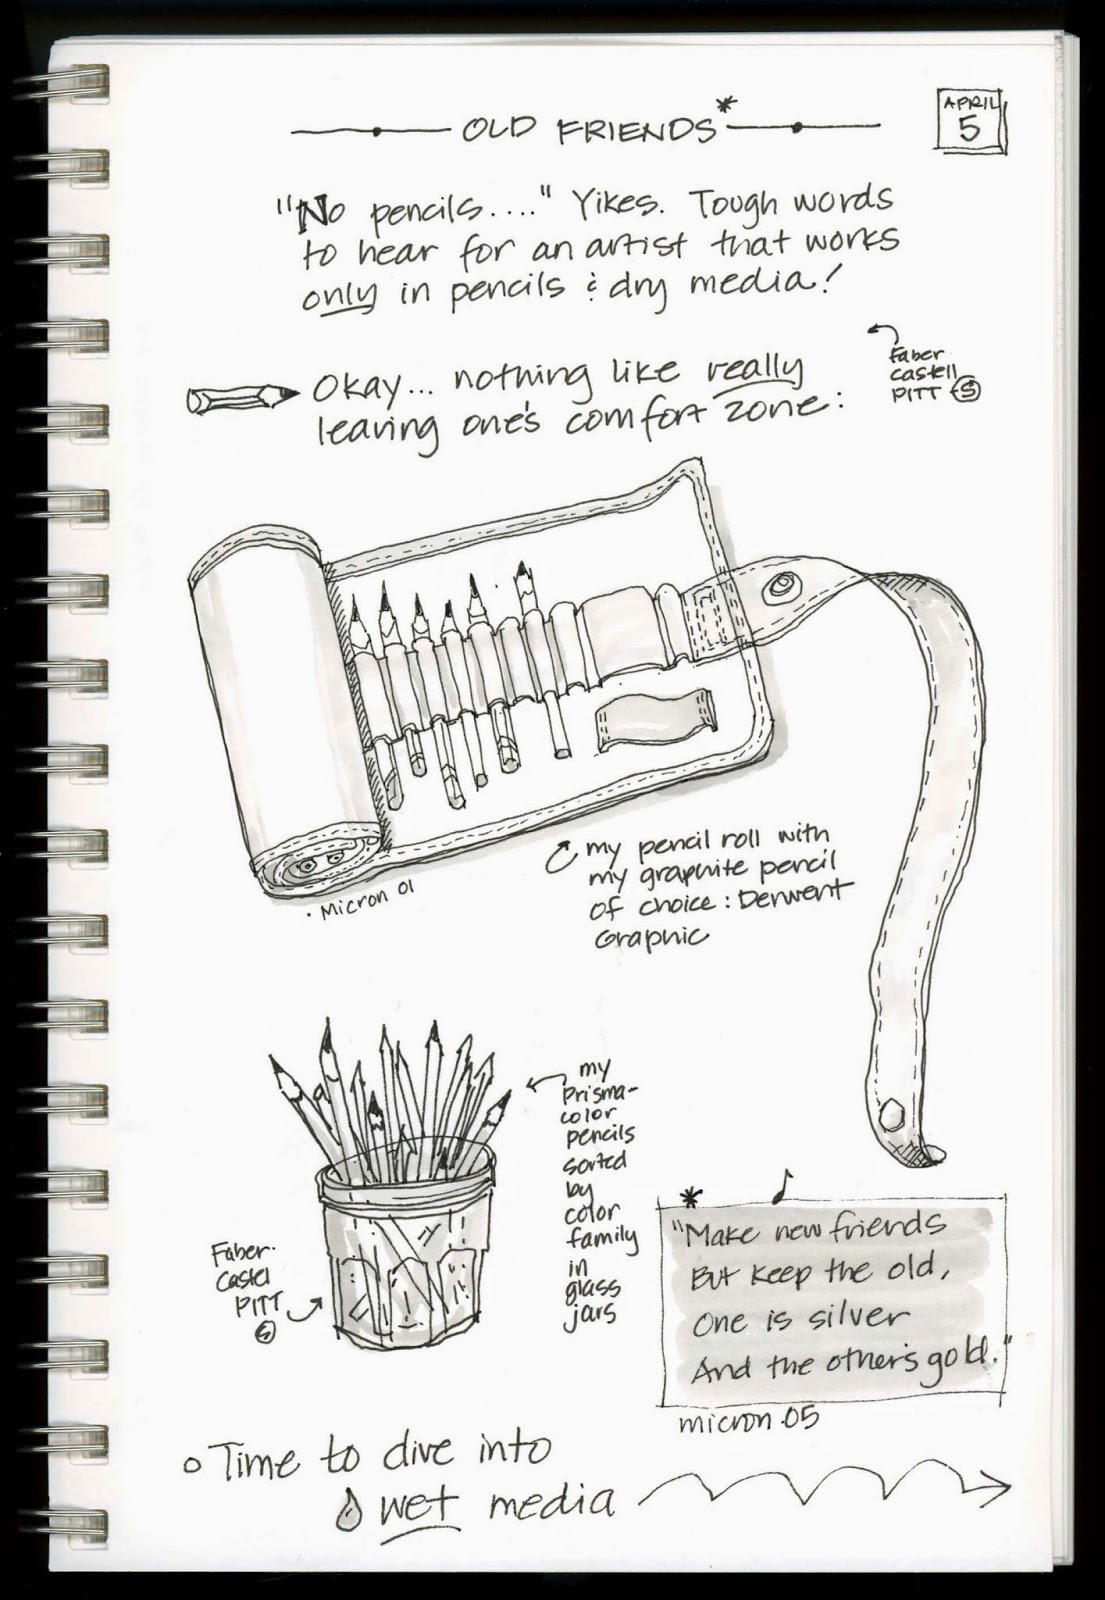 OLD FRIENDS*
APRIL
5
"No pencils...." Yikes. Tough words
to hear for an artist that works
only in pencils & dry media!
Faber
Castell
PITT S
Okay... nothing like really
leaving one's comfort zone:
my pencil roll with
my graphite pencil
of choice: Derwent
Graphic
. Micron 01
my
Prisma-
color
pencils
sorted
by
color
family
in
glass
jars
Faber-
Castel
PITT
S
*
"Make new friends
But keep the old,
One is silver
And the other's gold."
micron 05
Time to dive into
wet media